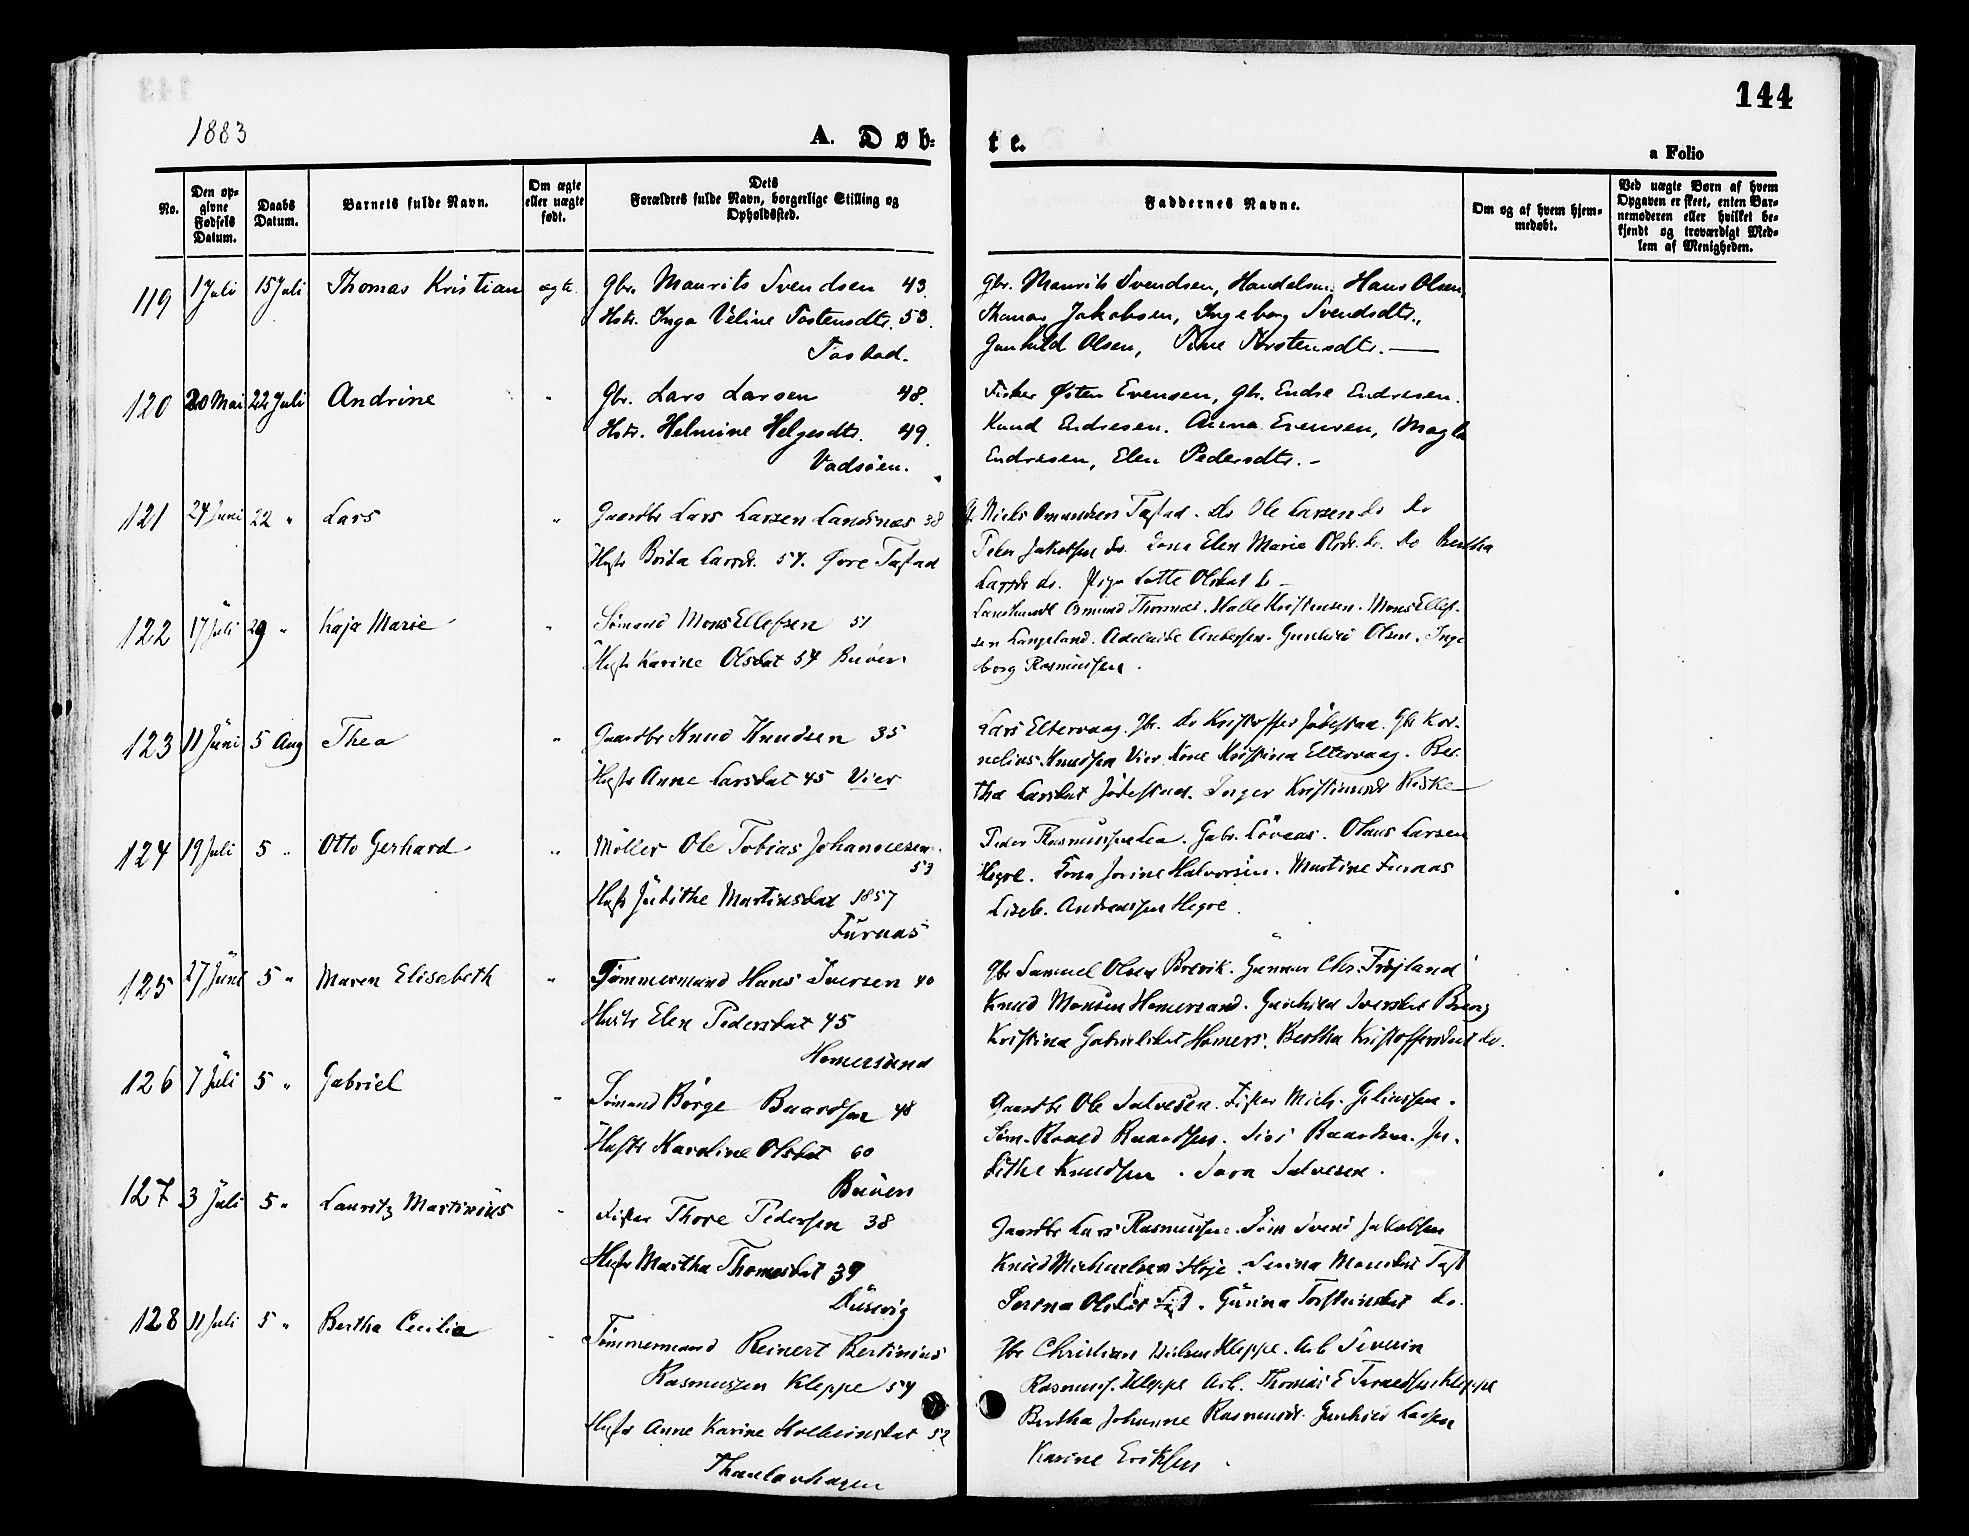 144
1883
A. Døb-
te.
a Folio
No.
Den op-
givne
Fødsels
Datum.
Daabs
Datum.
Barnets fulde Navn.
Om ægte
eller uægte
født.
Dets
Forældres fulde Navn, borgerlige Stilling og
Opholdssted.
Faddernes Navne.
Om og af hvem hjem-
medøbt.
Ved uægte Børn af hvem
Opgaven er skeet, enten Bar-
nemoderen eller hvilket be-
kjendt og troværdigt Med-
lem af Menigheden.
119 1 Juli 15 Juli Thomas Kristian ægte
Gbr. Maurits Svendsen 43.
Hstr. Inga Veline Tostensdtr. 53.
Tastad.
Gbr. Maurits Svendsen, Handelsm. Hans Olsen,
Thomas Jakobsen, Ingeborg Svendsdtr.,
Gunhild Olsen, Tine Torstensdtr. —
120 20 Mai 22 Juli Andrine "
Gbr. Lars Larsen 48.
Hstr. Helmine Helgesdtr. 49.
Vadsöen.
Fisker Østen Evensen, Gbr. Endre Endresen.
Knud Endresen. Anna Evensen,
Endresen, Elen Pedersdtr. –
121 24 Juni 22 " Lars "
Gaardbr Lars Larsen Landsnæs 38
Hustr Brita Larsdr. 54. Øvre Tastad
Niels Omundsen Tastad. Do Ole Larsen do do
Peder Jakobsen do. Kona Elen Marie Olsdr. do. Do Bertha
Larsdr do. Pige Lotte Olsdat do –
122 17 Juli 29 " Kaja Marie "
Sömand Mons Ellefsen 51
Hustr Karine Olsdat 54 Buöen
Omund Thomas. Halle Kristensen. Mons Ellef-
sen Langeland. Adelaide Andersen. Gunhild Olsen. Inge
borg Rasmussen.
123 11 Juni 5 Aug Thea "
Gaardbr Knud Knudsen 35
Hustr Anne Larsdat 45 Vier
Lars Eltervaag. Gbr. do Kristoffer Jödestad. Gbr Kor-
nelius Knudsen Vier. Kone Kristina Eltervaag. Ber-
tha Larsdat Jödestad. Inger Kristiansdr Kiske
124 19 Juli 5 " Otto Gerhard "
Möller Ole Tobias Johannesen
53
Hustr Judithe Martinsdat 1857
Furnæs
Peder Rasmussen Lea. Gabr. Lövaas. Olaus Larsen
Hegre. Kona Jorine Halvorsen. Martine Furnæs
Liseb. Andreassen Hegre.
125 27 Juni 5 " Maren Elisabeth "
Tømmermand Hans Iversen 40
Hustr Elen Pedersdat 45
Homersand
Gbr Samuel Olsen Brevik. Gunnar Chr. Fröjland
Knud Monsen Homersand. Gunhild Iversdat
Kristina Gabrielsdat Homers. Bertha Kristoffersdat do.
126 7 Juli 5 " Gabriel "
Sömand Börge Baardsen 48
Hustr Karoline Olsdat 60
Buöen
Gaardbr Ole Salvesen. Fisker Mich. Geliussen.
Söm. Roald Baardsen. Siri Baardsen. Ju-
dithe Knudsen. Sara Salvesen.
127 3 Juli 5 " Lauritz Martinius "
Fisker Thore Pedersen 38
Hustr Martha Thomasdat 39
Dusevig
Gaardbr Lars Rasmussen. Söm Svend Jakobsen
Knud Michaelsen Hoje. Serina Monsdat Tast
Serina Olsdat. Gurina Torsteinsdat do.
128 11 Juli 5 " Bertha Cecilia "
Tömmermand Reinert Bertinius
Rasmussen Kleppe 54
Hustr Anne Karine Kolbeinsdat 52
Thaulowhagen
Gbr Christian Nielsen Kleppe. Arb Severin
Rasmuss. Kleppe Arb. Thomas E Kleppe
Bertha Johanne Rasmusdr. Gunhild Larsen
Karine Eriksen.